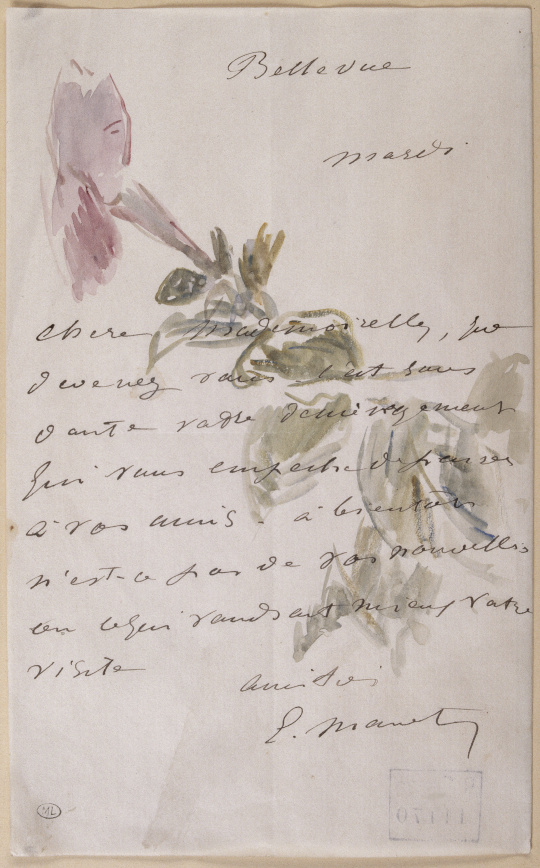 Bellevue
mardi
chere mademoiselle, que
devenez vous c'est sans
doute votre déménagement
qui vous empeche de penser
à vos amis. à bientôt
n'est-ce pas de vos nouvelles
ou ce qui vaudrait mieux votre
visite
amitiés
E. Manet
ML